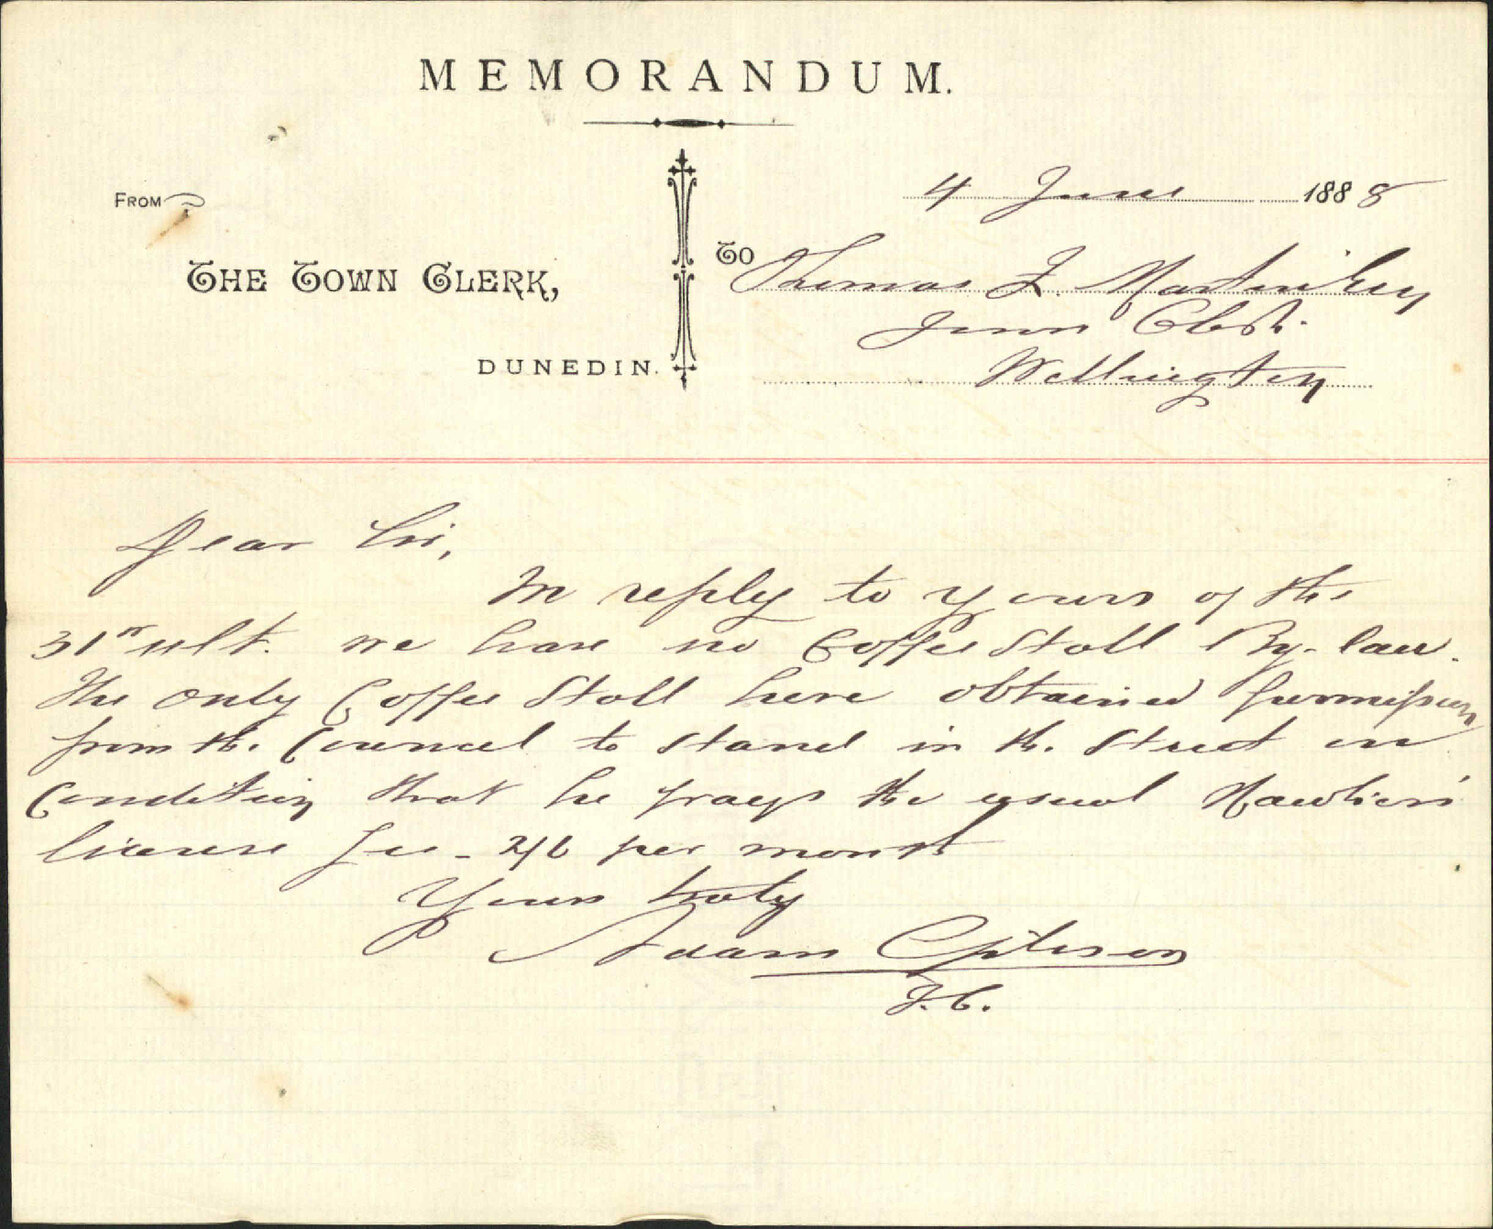 MEMORANDUM.
FROM
4 June 1888
THE TOWN CLERK,
DUNEDIN.
To Thomas F. Martin Esq
Town Clerk.
Wellington
Dear Sir,
In reply to yours of the
31st ult. we have no Coffee Stall By-law.
The only Coffee Stall here obtained permission
from the Council to stand in the Street on
Condition that he pays the usual Hawkers'
license fee - 2/6 per month
Yours truly
Adam
T.C.